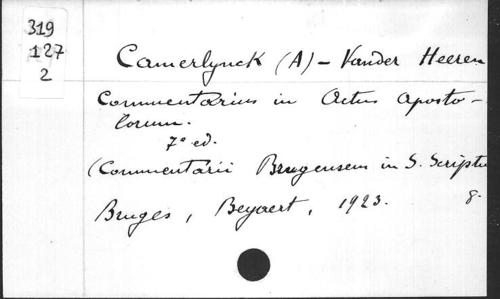 319
127
2
Camerlynck (A) – Vander Heeren
Commentarius in Actus Aposto-
lorum.
7ª ed.
(Commentarii Brugensem in S. Scriptu
Bruges, Beyaert, 1923. 8.